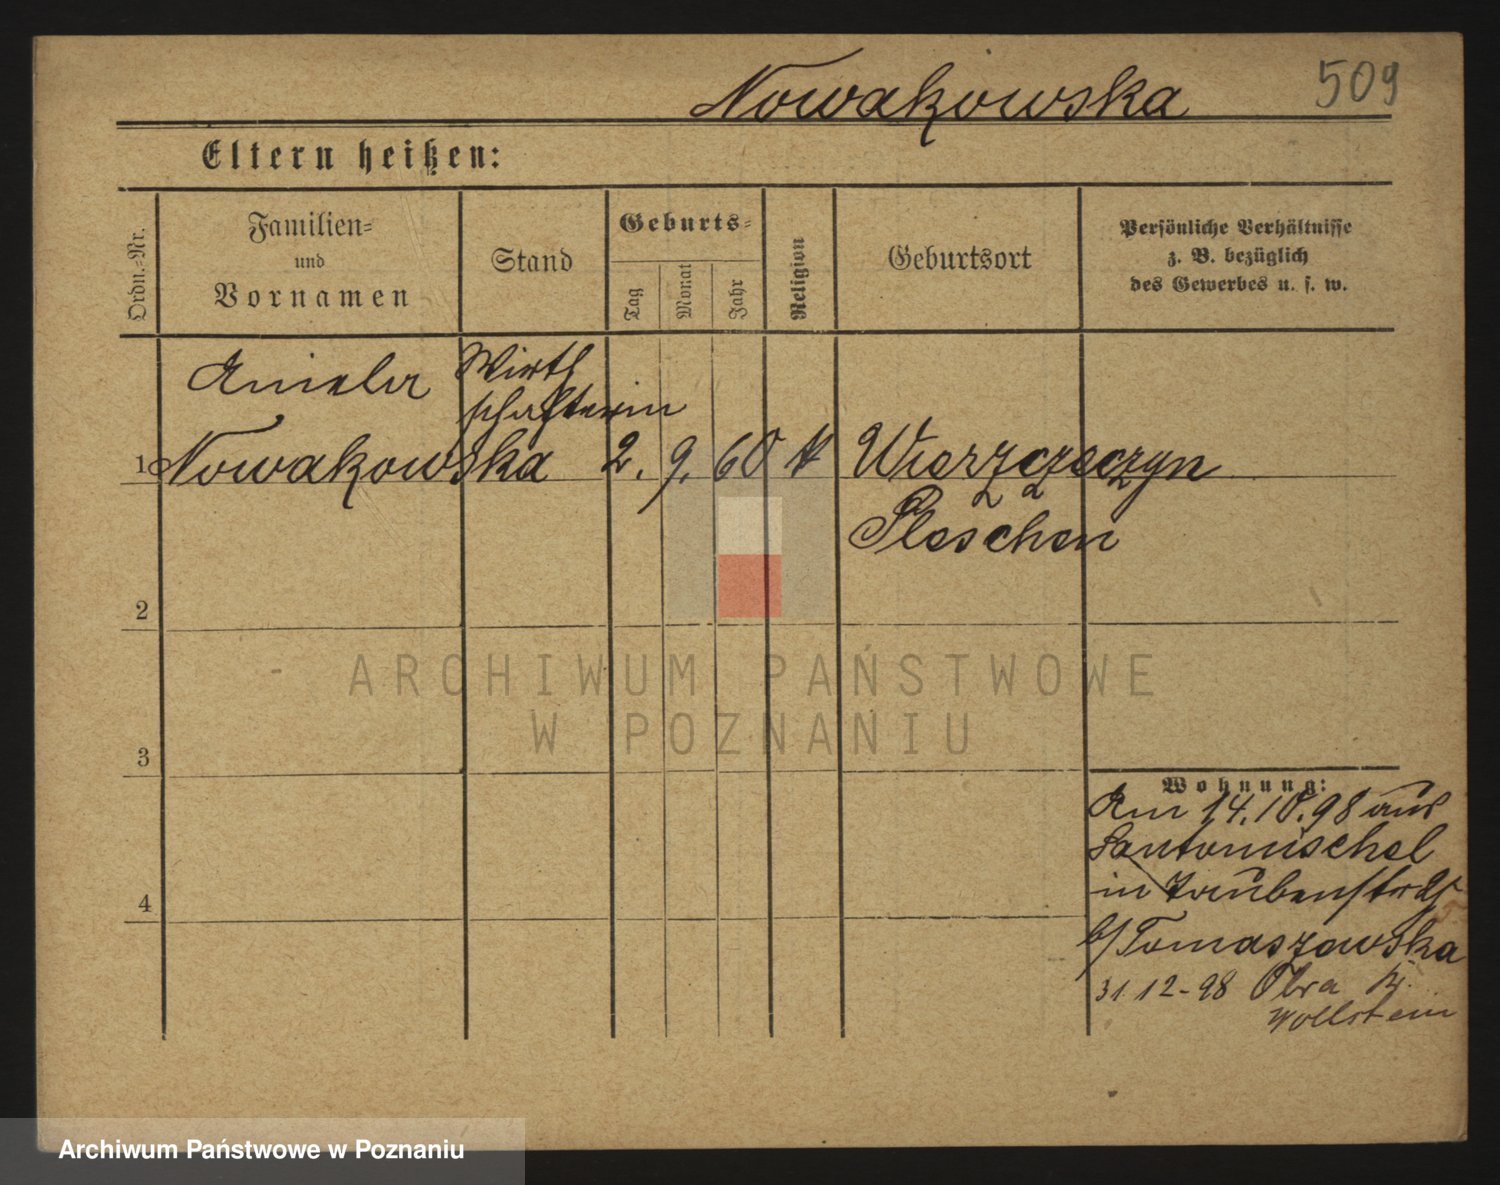 Nowakowska 509
Eltern heißen:
Ordn.-Nr.
Familien-
und
Vornamen
Stand
Geburts-
Tag
Monat
Jahr
Religion
Geburtsort
Persönliche Verhältnisse
z. B. bezüglich
des Gewerbes u. s. w.
Aniela Wirth
schafterin
1 Nowakowska 2. 9. 60 k Wierzczeczyn
Pleschen
2
ARCHIWUM PAŃSTWOWE
W POZNANIU
3
Wohnung:
Am 14.10.98 aus
Santomischel
in Taubenstr
4
b/ Tomaszewska
31 12-98 Obra
Wollstein
Archiwum Państwowe w Poznaniu